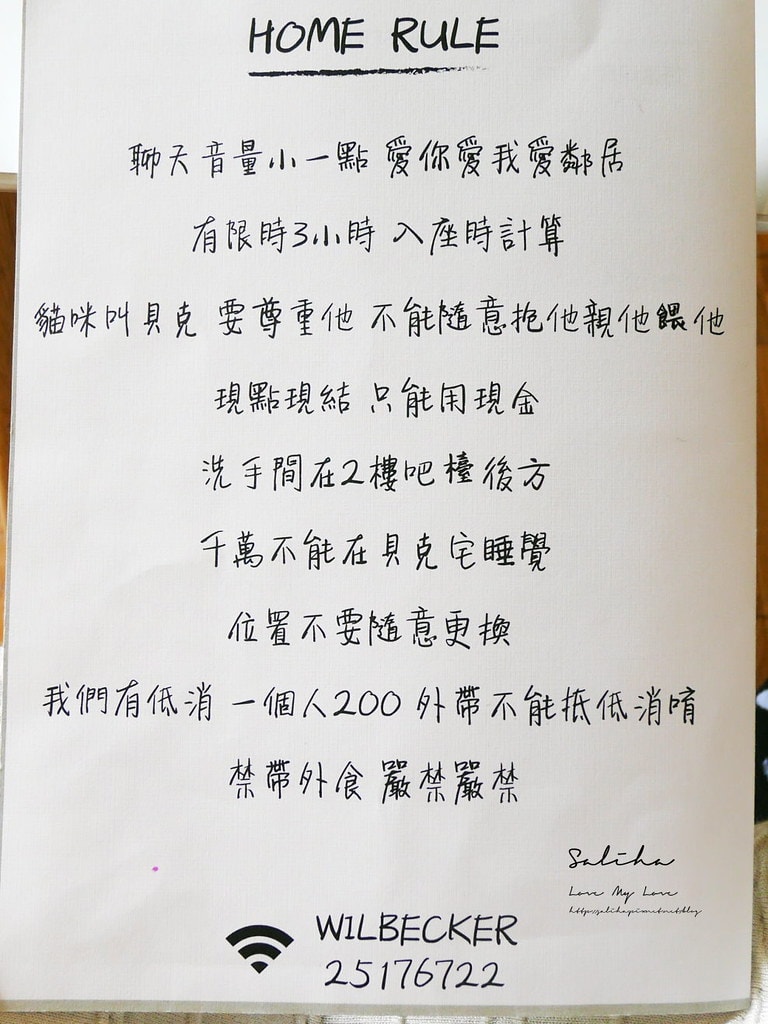 HOME RULE
聊天音量小一點 愛你愛我愛鄰居
有限時3小時 入座時計算
貓咪叫貝克 要尊重他 不能隨意抱他親他餵他
現點現結 只能用現金
洗手間在2樓吧檯後方
千萬不能在貝克宅睡覺
位置不要隨意更換
我們有低消 一個人200 外帶不能抵低消唷
禁帶外食 嚴禁嚴禁
Saliha
Love My Love
WILBECKER
25176722